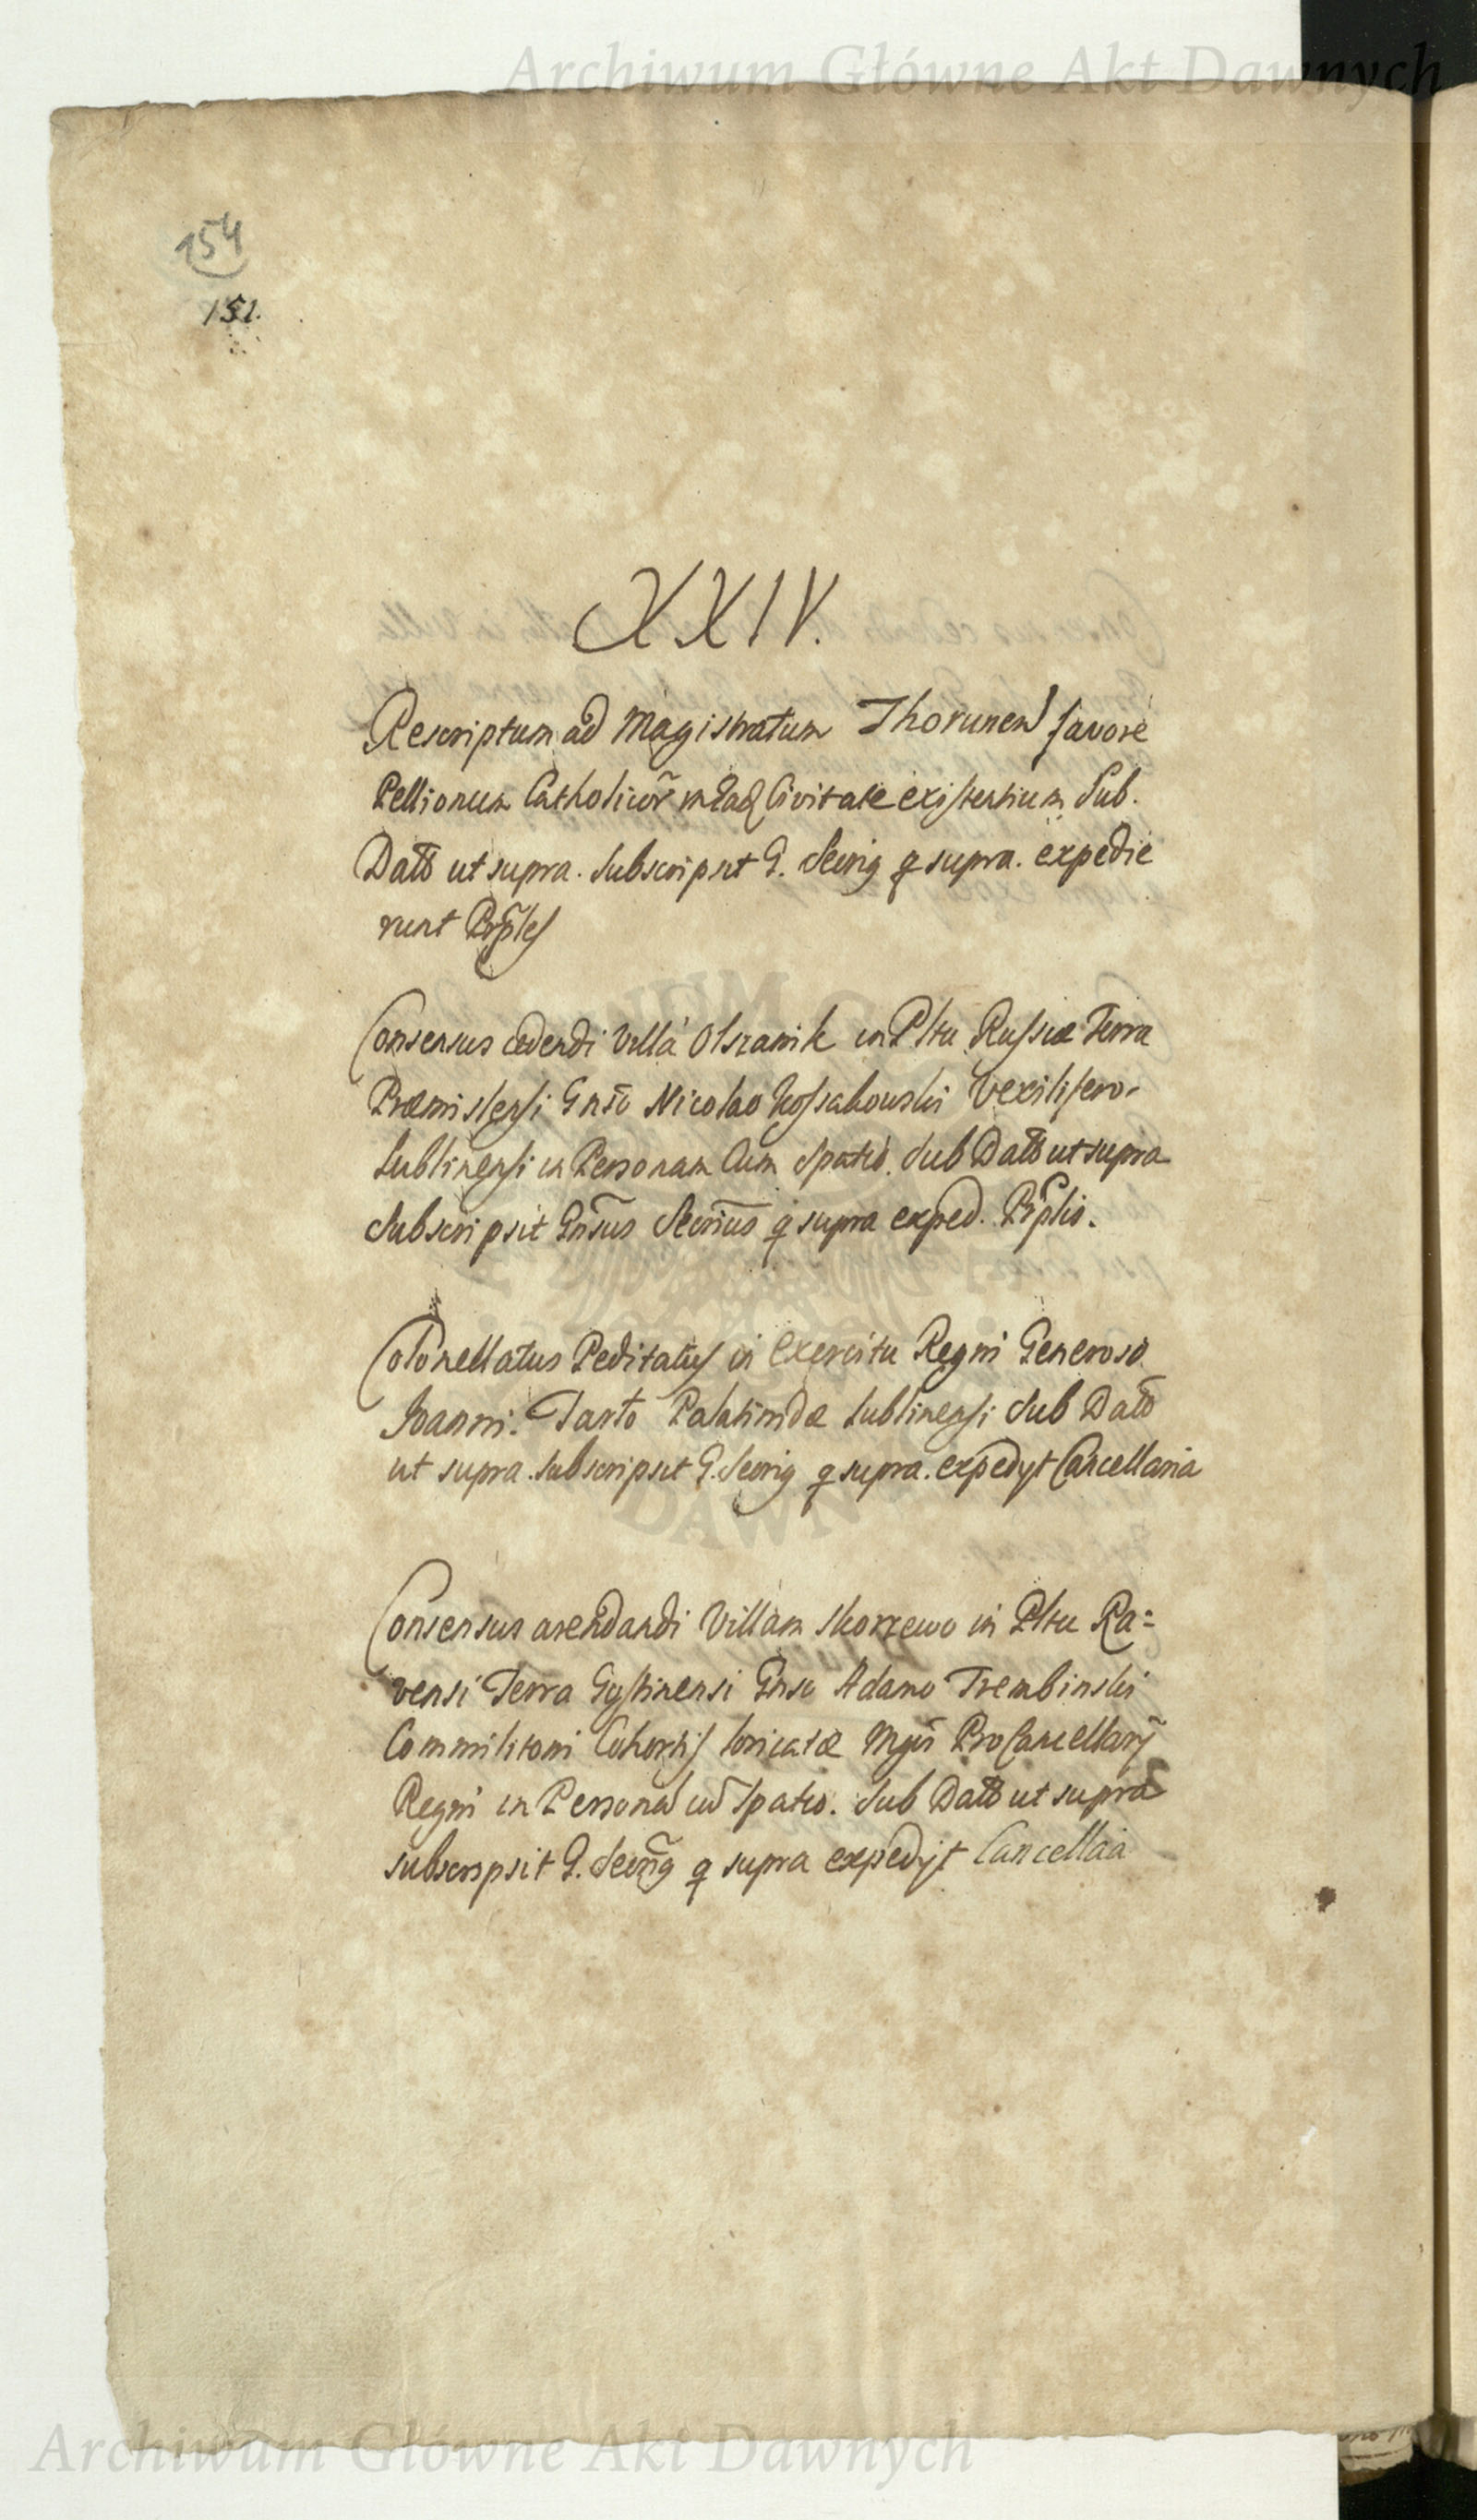 Archiwum Główne Akt Dawnych
154
151.
XXIV.
Rescriptum ad Magistratum Thorunen favore
Pellionum Catholicor̃ in Civitate existentium Sub.
Datõ ut supra. Subscripsit G. Secrig q supra. expedie
runt
Consensus cedendi villa Olszanik in Pltu Russiæ Terra
Præmislensi Gnso Nicolao Kossakowski Vexilifero
Lublinensi in Personam Cum Spatio. Sub Datõ ut supra
Subscripsit Gnsus Secrius q supra exped.
Colonellatus Peditatus in Exercitu Regni Generoso
Joanni Tarło Palatinidæ Lublinensi Sub Datõ
ut supra. Subscripsit G. Secrig q supra. expedyt Cancellaria
Consensus arendandi Villam Skorzewo in Pltu Ra=
vensi Terra Gostinensi Gnso Adamo Trembinski
Commilitoni Cohortis loricatæ ProCancellarÿ
Regni in Persona cũ Spatio. Sub Datõ ut supra
subscripsit G. Secrig q supra expedÿt Cancellaia
DAWN
Archiwum Główne Akt Dawnych